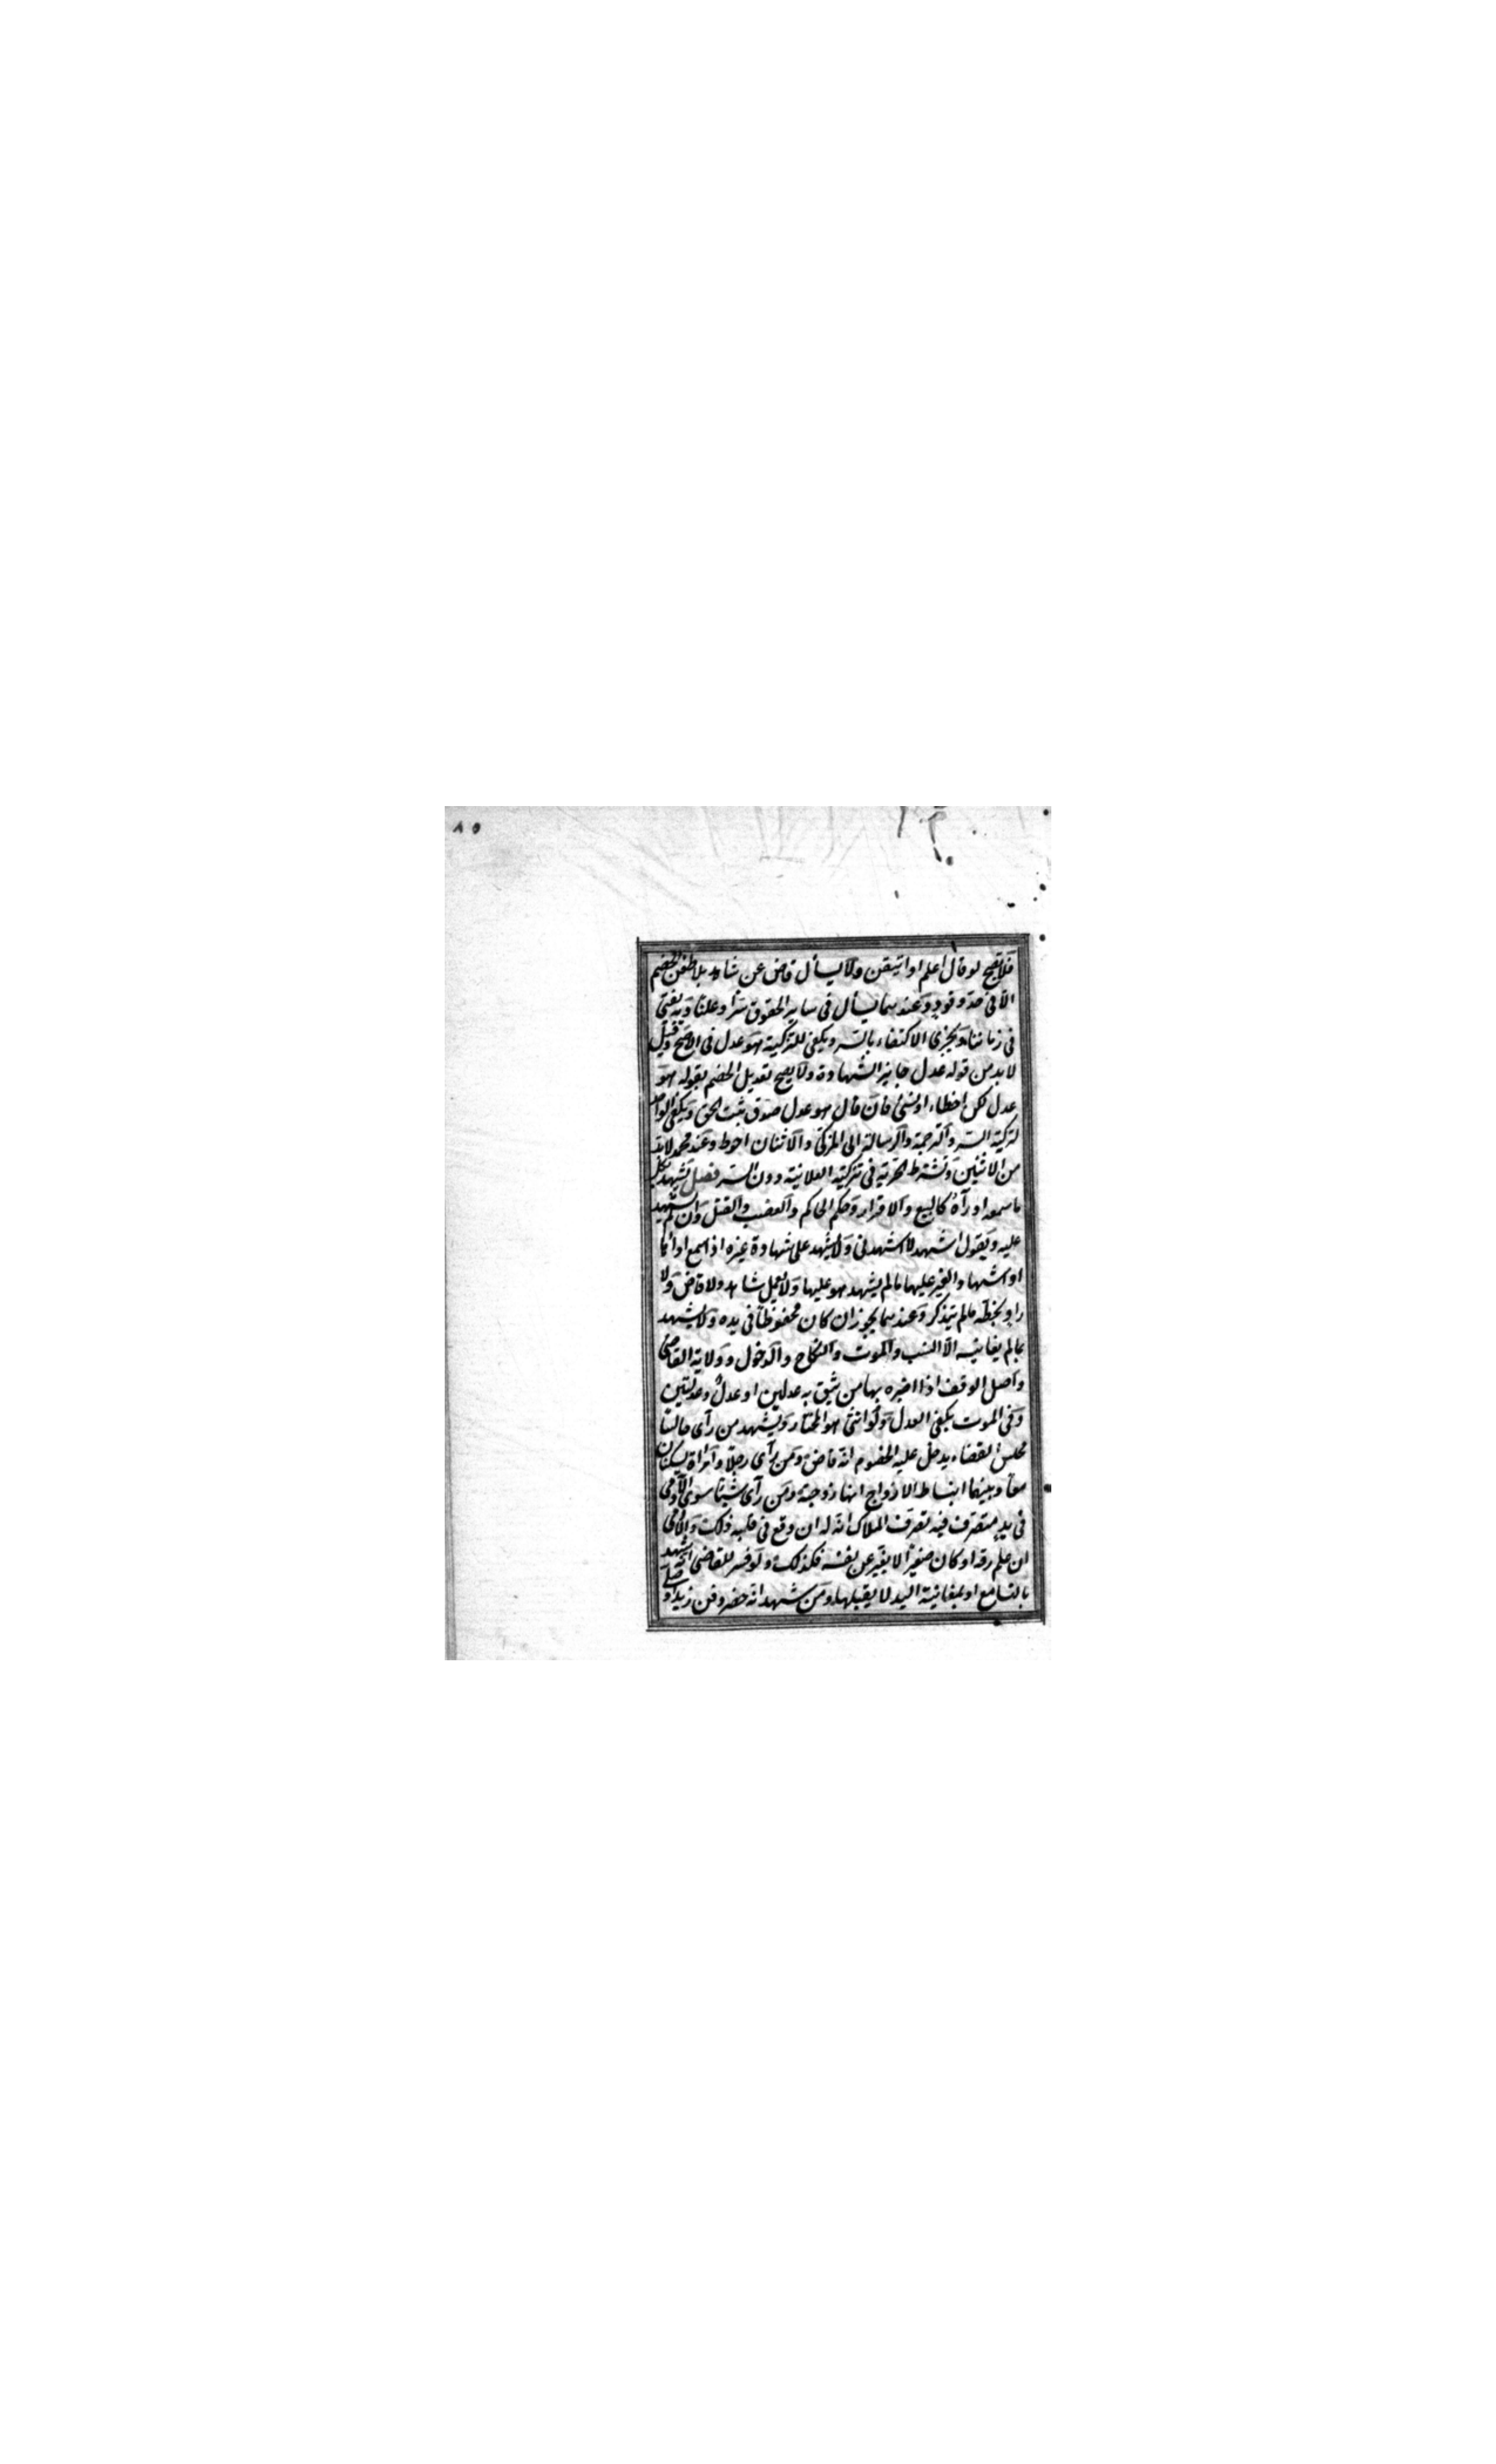 ٨٥
فلا تصح لو قال اعلم او اتيقن ولا يسأل قاض عن شاهد بلا طعن الخصم
الا في حد وقود وعندهما يسأل في سائر الحقوق سرا وعلنا وبه يفتى
في زماننا ويجزى الاكتفاء بالسر ويكفى للتزكية هو عدل في الاصح وقيل
لا بد من قوله عدل جائز الشهادة ولا يصح تعديل الخصم بقوله هو
عدل لكن اخطاء او نسى فان قال هو عدل صدق ثبت الحق ويكفى الواحد
لتزكية السر والترجمة والرسالة الى المزكى والاثنان احوط وعند محمد لا بد
من الاثنين وتشترط الحرية في تزكية العلانية دون السر فصل يشهد بكل
ما سمعه او رآه كالبيع والاقرار وحكم الحاكم والغصب والقتل وان لم يشهد
عليه ويقول اشهد لا اشهدنى ولا يشهد على شهادة غيره اذا سمع اداءها
او اشهاد الغير عليها ما لم يشهد هو عليها ولا يعمل شاهد ولا قاض ولا
راو بخطه ما لم يتذكر وعندهما يجوز ان كان محفوظا في يده ولا يشهد
بما لم يعاينه الا النسب والموت والنكاح والدخول وولاية القاضى
واصل الوقف اذا اخبره بها من يثق به عدلين او عدل وعدلتين
وفى الموت يكفى العدل ولو انثى هو المختار ويشهد من رأى جالسا
مجلس القضاء يدخل عليه الخصوم انه قاض ومن رأى رجلا وامرأة يسكنان
معا وبينهما انبساط الازواج انها زوجته ومن رأى شيئا سوى الآدمى
في يد متصرف فيه تصرف الملاك انه له ان وقع في قلبه ذلك والآدمى
ان علم رقه او كان صغيرا لا يعبر عن نفسه فكذلك ولو فسر للقاضى انه شهد
بالتسامع او بمعاينة اليد لا يقبلها ومن شهد انه حضر دفن زيد او صلى